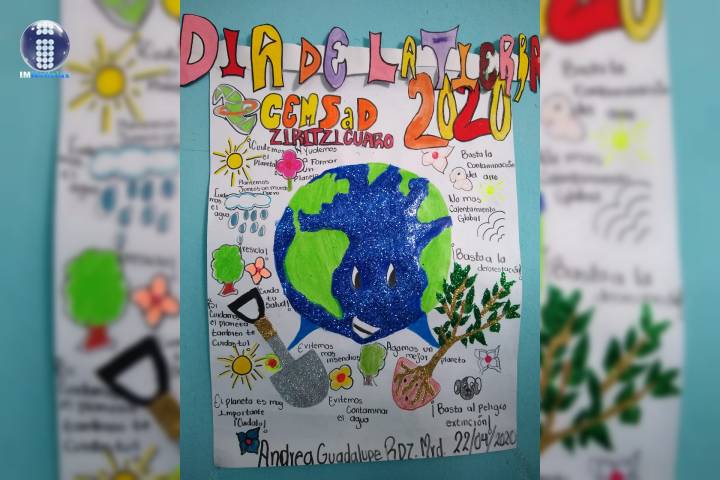 IMNoticias
DIA DE LA TIERRA
2020
CEMSaD
ZIRITZICUARO
¡Cuidemos
el
Planeta!
Ayudemos
a Formar
un
planeta
Plantemos
Juntos un mundo
nuevo
Cuide
mos
el
agua
Basta la
Contaminación
de
aire
No mas
Calentamiento
Global!
¡recicla!
¡Basta a la
deforestación!
Cuida
tu
Salud!
Si
Cuidamos
el planeta
tambien te
Cuidas tu!
Evitemos
mas
insendios
Agamos un
mejor planeta
El planeta es muy
importante
¡Cuidalo!
Evitemos
Contaminar
el agua
¡Basta al peligro
extinción!
Andrea Guadalupe RDZ. Mrd. 22/04/2020